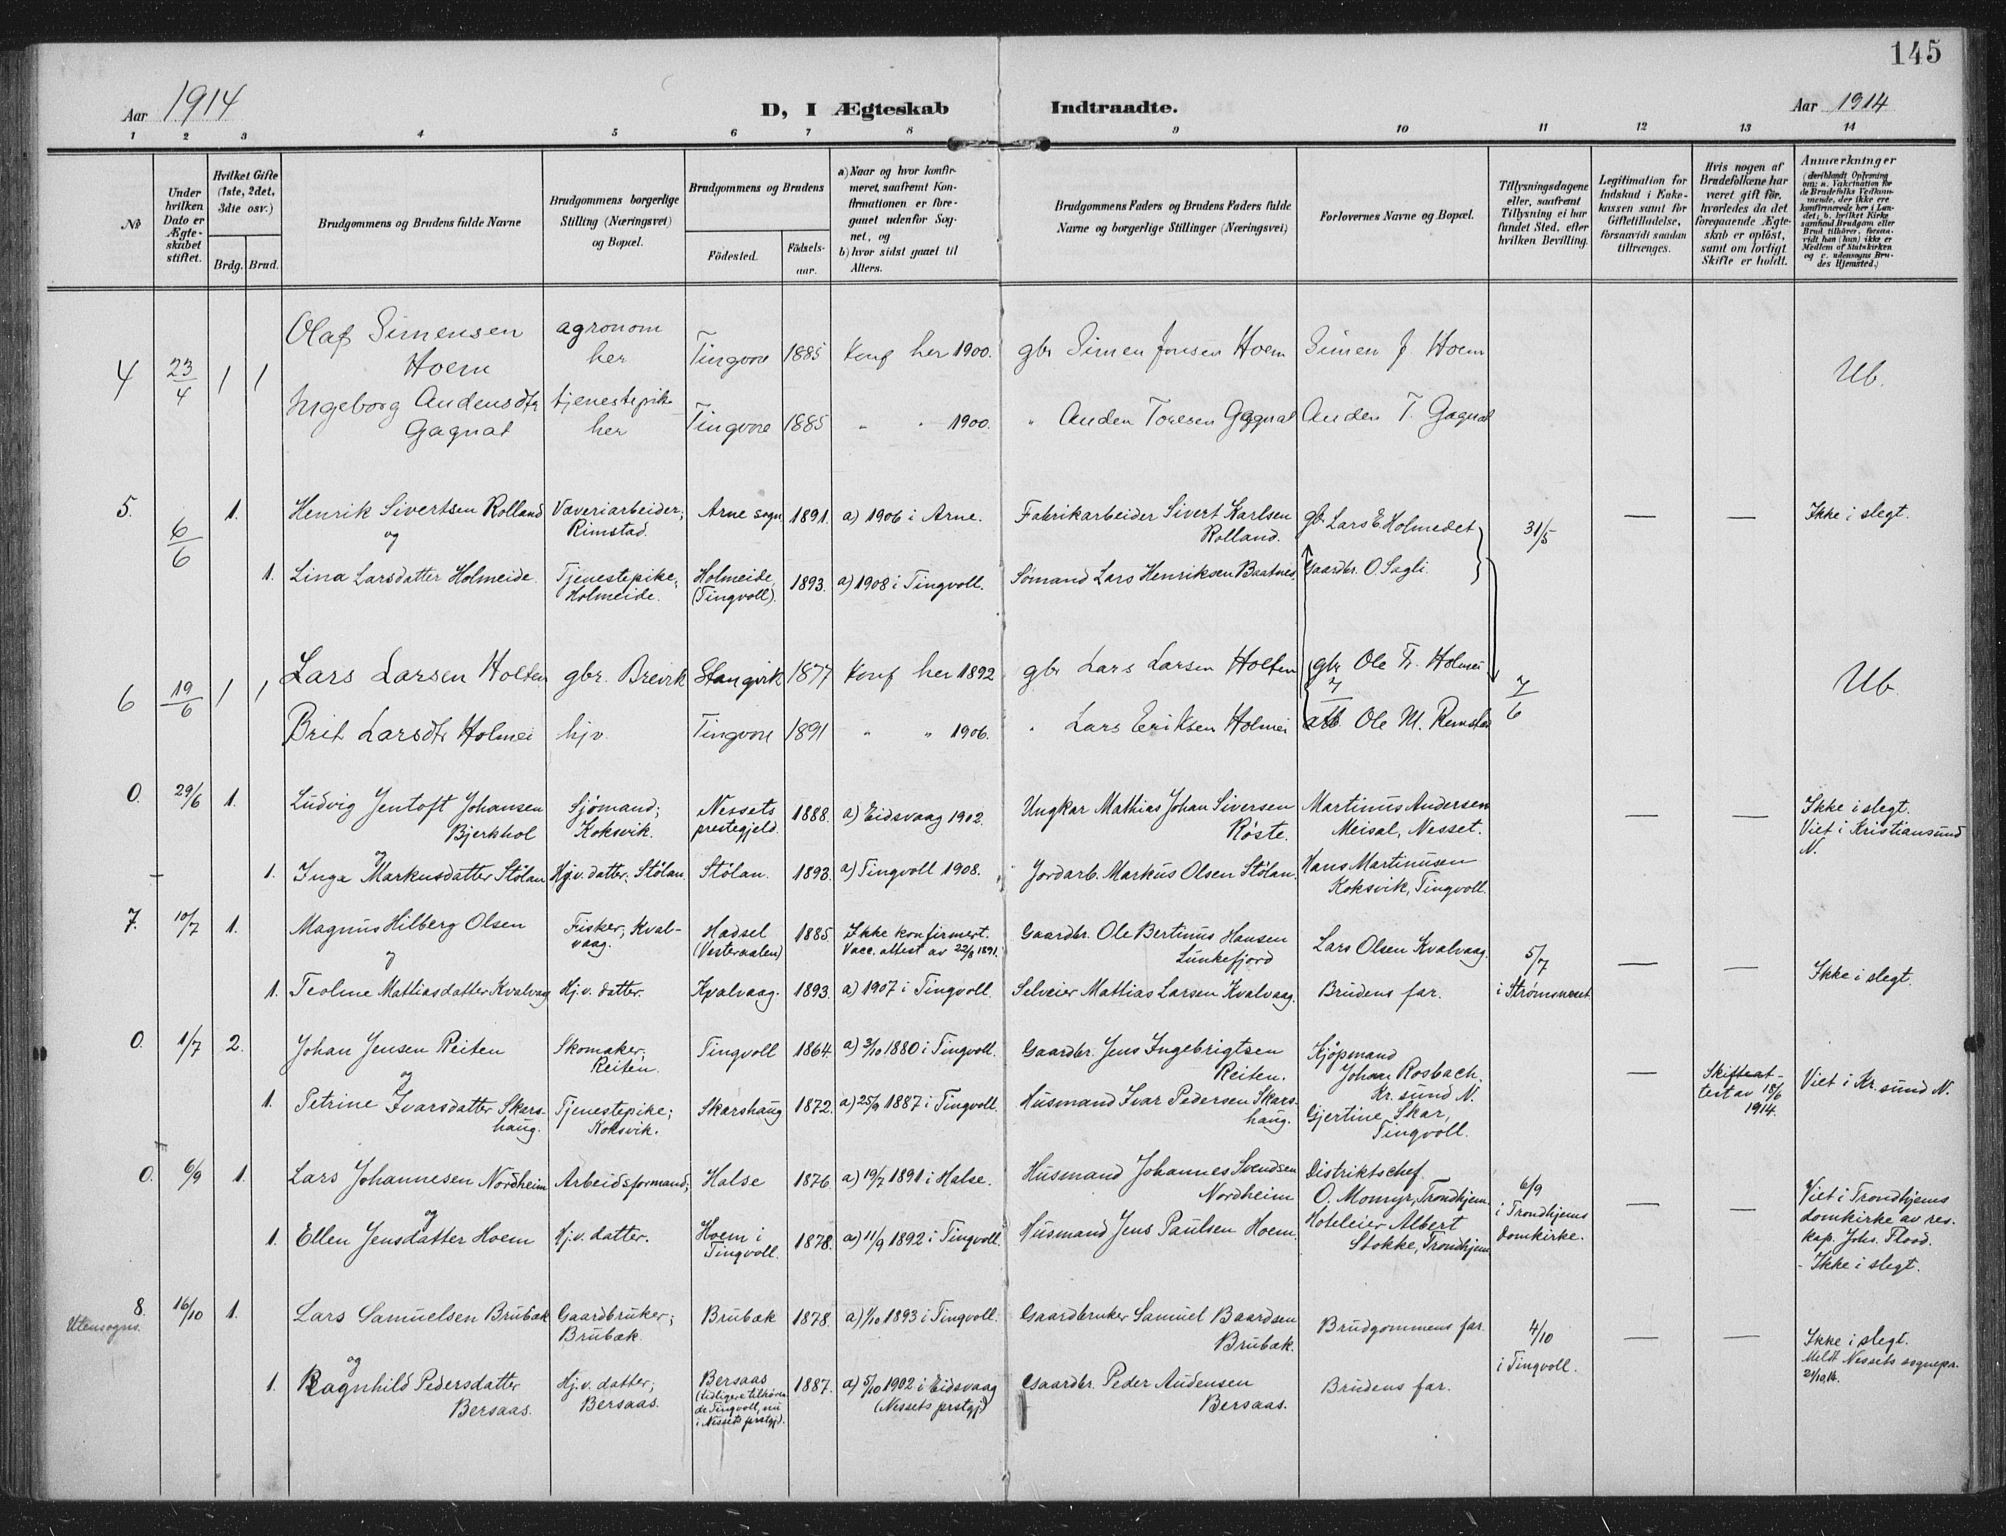 145
Aar 1914
D, I Ægteskab Indtraadte.
Aar 1914
1 2 3 4 5 6 7 8 9 10 11 12 13 14
No
Under hvilken Dato er Ægteskabet stiftet.
Hvilket Gifte (1ste, 2det, 3die osv.)
Brdg. Brud.
Brudgommens og Brudens fulde Navne
Brudgommens borgerlige Stilling (Næringsvei) og Bopæl.
Brudgommens og Brudens
Fødested. Fødselsaar.
a) Naar og hvor konfirmeret, saafremt Konfirmationen er foregaaet udenfor Sognet, og
b) hvor sidst gaaet til Alters.
Brudgommens Faders og Brudens Faders fulde Navne og borgerlige Stillinger (Næringsvei)
Forlovernes Navne og Bopæl.
Tillysningsdagene eller, saafremt Tillysning ei har fundet Sted, efter hvilken Bevilling.
Legitimation for Indskud i Enkekassen samt for Giftetilladelse, forsaavidt saadan tiltrænges.
Hvis nogen af Brudefolkene har været gift før, hvorledes da det foregaaende Ægteskab er opløst, samt om lovligt Skifte er holdt.
Anmærkninger
4 23/4 1 1
Olaf Simensen Hoem
agronom her
Tingvoll 1885 Konf her 1900.
gbr Simen Jonsen Hoem
Simen J. Hoem
Ub.
Ingeborg Andensdtr Gagnat
tjenestepike her
Tingvoll 1885 " " 1900.
" Anden Toresen Gagnat
Anden T. Gagnat
5. 6/6 1.
Henrik Sivertsen Rolland
og
Væveriarbeider; Rimstad.
Arne sogn 1891. a) 1906 i Arne.
Fabrikarbeider Sivert Karlsen Rolland.
gb. Lars E Holmedet
31/5 — —
Ikke i slegt.
1. Lina Larsdatter Holmeide.
Tjenestepike; Holmeide.
Holmeide, (Tingvoll). 1893. a) 1908 i Tingvoll.
Sømand Lars Henriksen Baatnes.
Gaardbr. O. Sagli.
6 19/6 1 1
Lars Larsen Holten
gbr. Brevik
Stangvik 1877 Konf her 1892
gbr Lars Larsen Holten
gbr Ole Tr. Holmei
7/6
Ub.
Brit Larsdtr Holmei
hjv.
Tingvoll 1891 " " 1906.
" Lars Eriksen Holmei
Ole M. Remstad
0. 29/6 1.
Ludvig Jentoft Johansen Bjerkhol
og
Sjømand; Koksvik.
Nessets prestegjeld. 1888. a) Eidsvaag 1902.
Ungkar Mathias Johan Siversen Røste.
Martinus Andersen Meisal, Nesset.
— —
Ikke i slegt. Viet i Kristiansund N.
1. Inga Markusdatter Stølan
Hjv. datter; Stølan.
Stølan. 1893. a) Tingvoll 1908.
Jordarb. Markus Olsen Stølan.
Hans Martinusen Koksvik, Tingvoll.
7. 10/7 1.
Magnus Hilberg Olsen
og
Fisker; Kvalvaag.
Hadsel (Vesteraalen) 1885. Ikke konfirmert. Vacc. attest av 22/8 1891.
Gaardbr. Ole Bertinus Hansen Lunkefjord
Lars Olsen Kvalvaag.
5/7 i Strømsneset
— —
Ikke i slegt.
1. Teoline Mattiasdatter Kvalvaag
Hj.v. datter.
Kvalvaag. 1893. a) 1907 i Tingvoll.
Selveier Mattias Larsen Kvalvaag.
Brudens far.
0. 1/7 2.
Johan Jensen Reiten
og
Skomaker; Reiten.
Tingvoll 1864. a) 3/10 1880 i Tingvoll.
Gaardbr. Jens Ingebrigtsen Reiten.
Kjøpmand Johan Rosbach, Kr. sund N.
—
Skifteattest av 18/6 1914.
Viet i Kr. sund N.
1. Petrine Ivarsdatter Skarshaug.
Tjenestepike; Koksvik.
Skarshaug 1872. a) 25/9 1887 i Tingvoll.
Husmand Ivar Pedersen Skarshaug.
Gjertine Skar, Tingvoll.
0. 6/9 1.
Lars Johannesen Nordheim
og
Arbeidsformand;
Halse 1876 a) 19/7 1891 i Halse.
Husmand Johannes Svendsen Nordheim
Distriktschef O. Momyr, Trondhjem.
6/9 i Trondhjems domkirke.
— —
Viet i Trondhjems domkirke av res. kap. Johs. Flood. - Ikke i slegt.
1 Ellen Jensdatter Hoem
Hj.v. datter.
Hoem i Tingvoll. 1878. a) 11/9 1892 i Tingvoll.
Husmand Jens Paulsen Hoem.
Hoteleier Albert Stokke, Trondhjem
8. Utensogns. 16/10 1.
Lars Samuelsen Brubæk
og
Gaardbruker; Brubæk.
Brubæk 1878. a) 1/10 1893 i Tingvoll.
Gaardbruker Samuel Baardsen Brubæk.
Brudgommens far.
4/10 i Tingvoll.
— —
Ikke i slegt. Meldt Nessets sognepr. 21/10 14.
1. Ragnhild Pedersdatter Bersaas.
Hj.v. datter; Bersaas.
Bersaas (tidligere tilhørende Tingvoll, nu i Nessets prstgj). 1887. a) 5/10 1902 i Eidsvaag (Nessets prstgj)
Gaardbr. Peder Audensen Bersaas.
Brudens far.